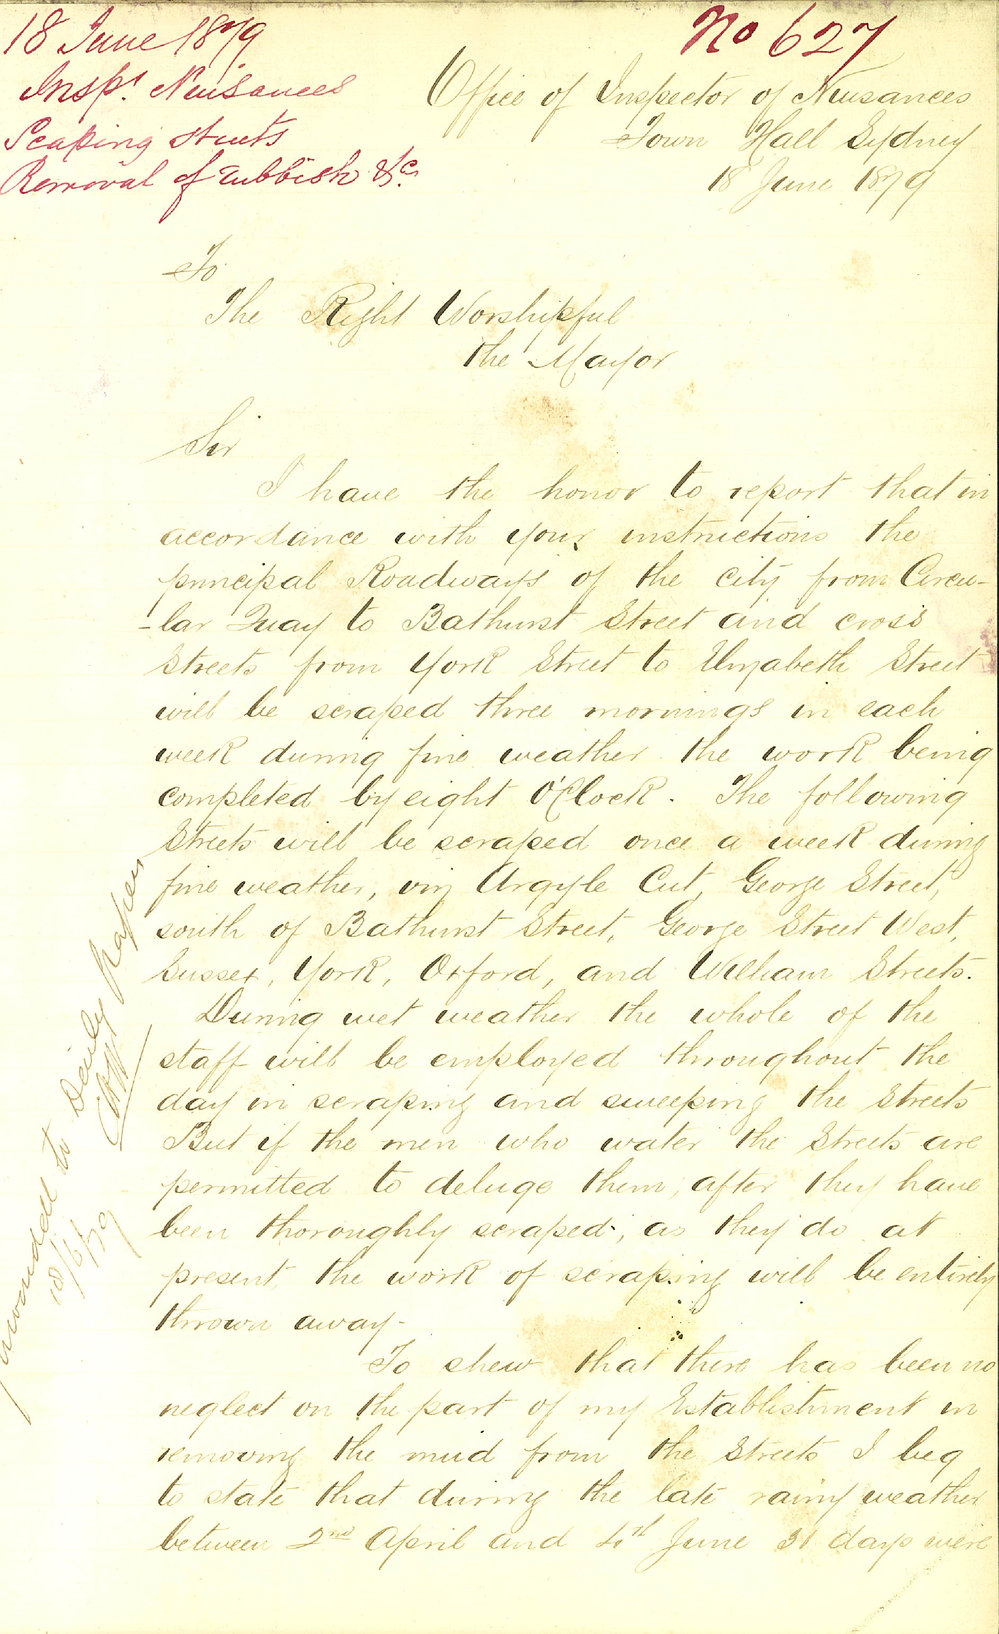 18 June 1879
Inspr. Nuisances
Scaping streets
Removal of Rubbish &c.
No 627
Office of Inspector of Nuisances
Town Hall Sydney
18 June 1879
To
The Right Worshipful
the Mayor
Sir
I have the honor to report that in
accordance with your instructions the
principal Roadways of the city from Circu-
-lar Quay to Bathurst Street and cross
Streets from York Street to Elizabeth Street
will be scraped three mornings in each
week during fine weather the work being
completed by eight O'Clock. The following
Streets will be scraped once a week during
fine weather, viz Argyle Cut, George Street,
south of Bathurst Street, George Street West,
Sussex, York, Oxford, and William Streets.
During wet weather the whole of the
staff will be employed throughout the
day in scraping and sweeping the Streets
But if the men who water the Streets are
permitted to deluge them, after they have
been thoroughly scraped, as they do at
present, the work of scraping will be entirely
thrown away-
To shew that there has been no
neglect on the part of my Establishment in
removing the mud from the Streets I beg
to state that during the late rainy weather
between 2nd April and 4th June 31 days were
to daily papers
18/6/79